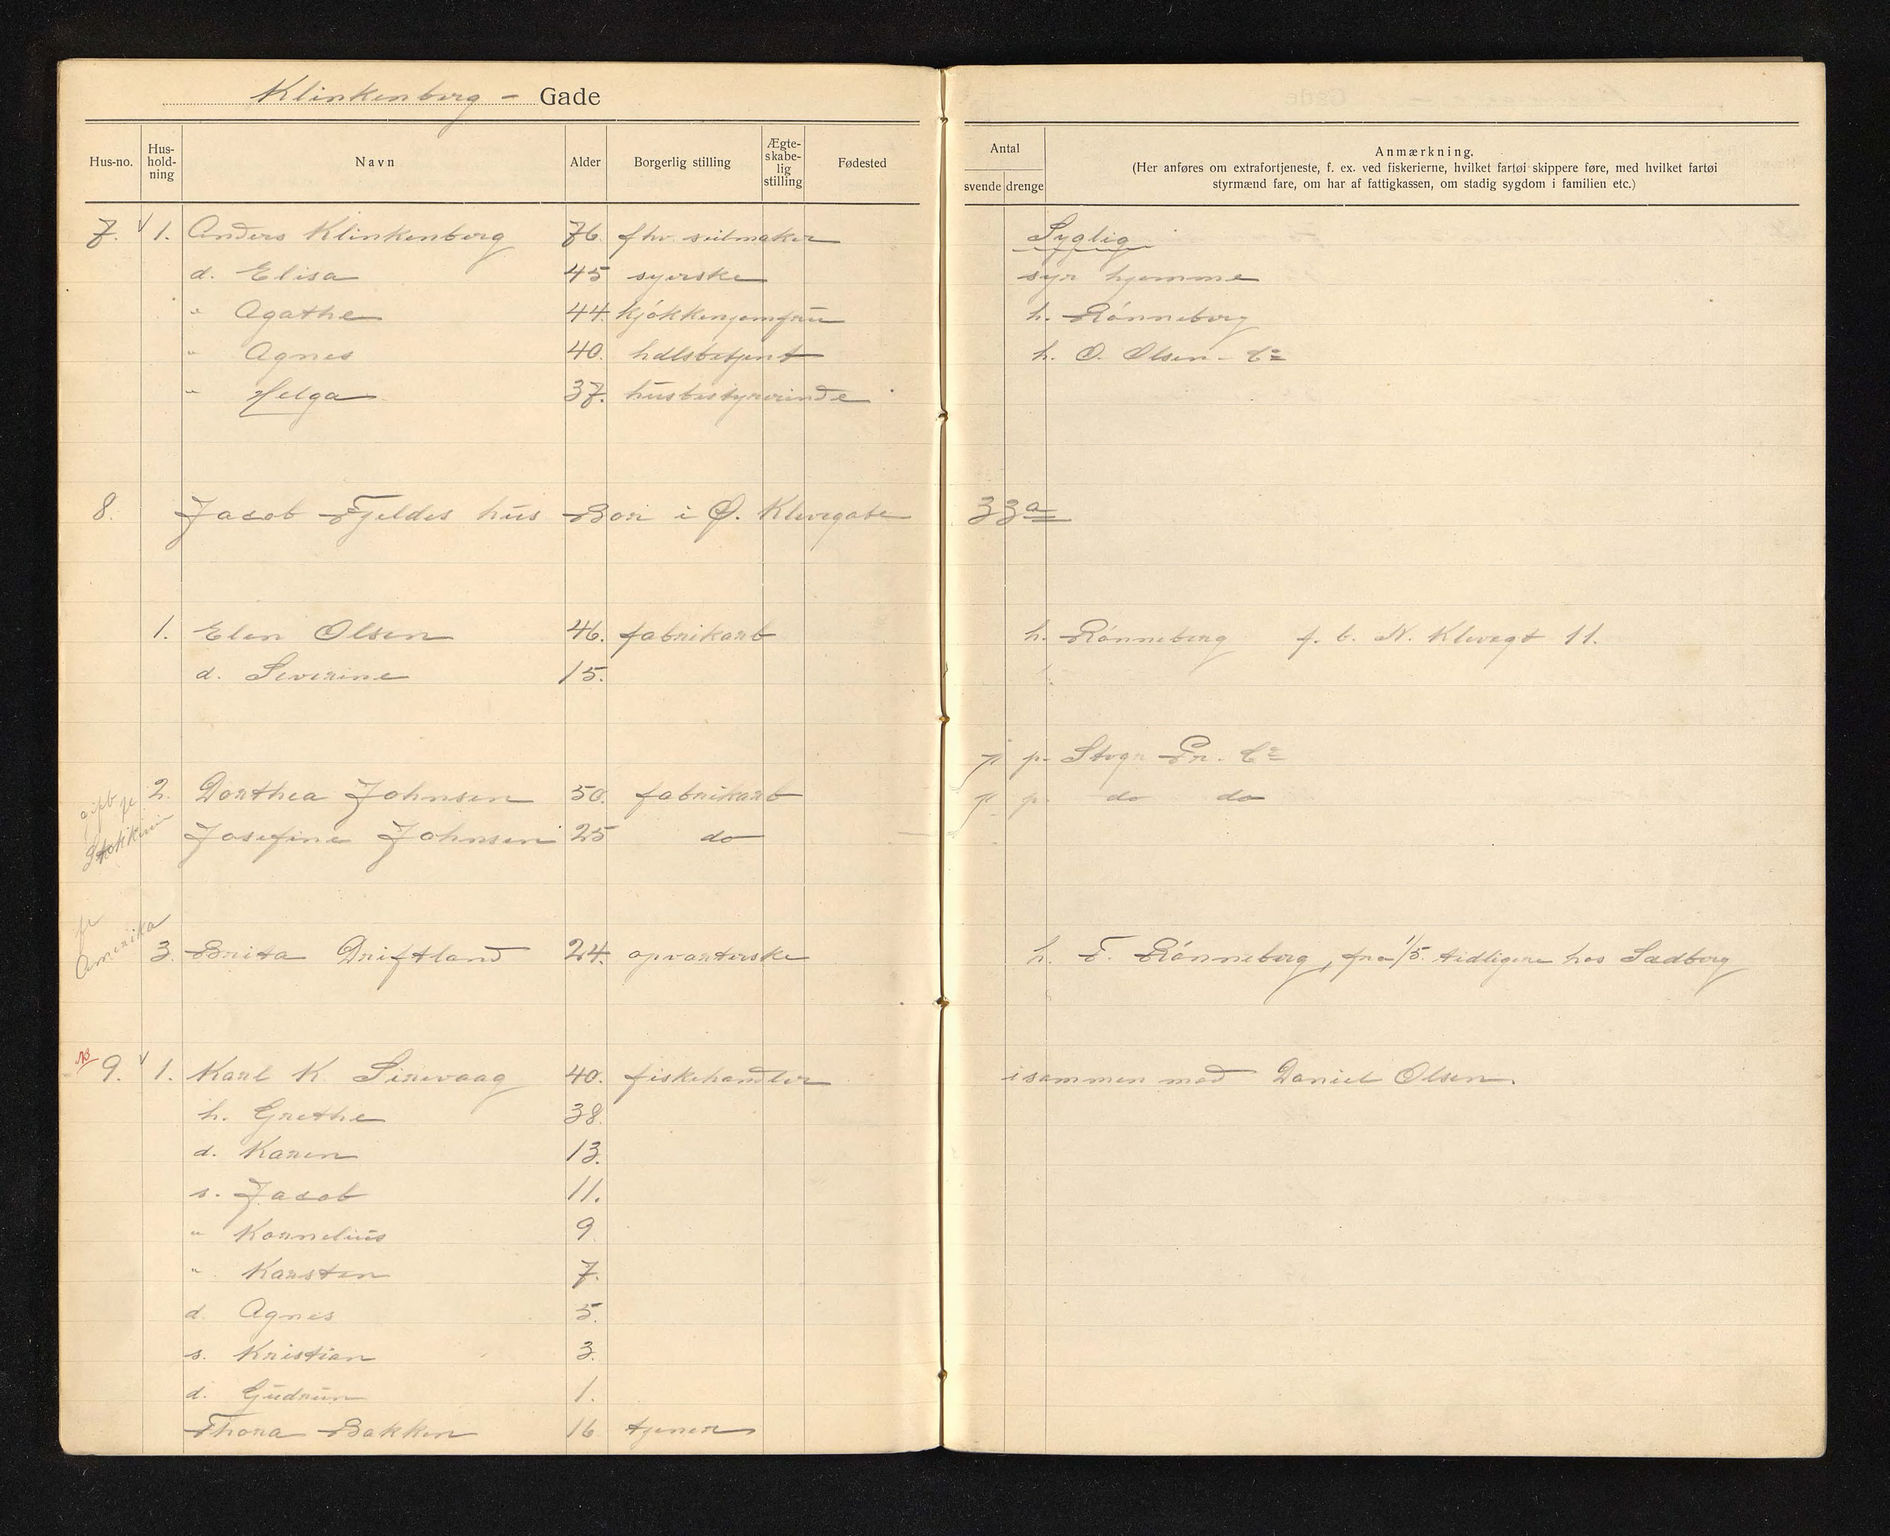 Klinkenberg - Gade
Hus-no. Hus-hold-ning Navn Alder Borgerlig stilling Ægte-skabe-lig stilling Fødested
Antal svende drenge
Anmærkning.
(Her anføres om extrafortjeneste, f. ex. ved fiskerierne, hvilket fartøi skippere føre, med hvilket fartøi
styrmænd fare, om har af fattigkassen, om stadig sygdom i familien etc.)
7. √ 1. Anders Klinkenberg 76. fhv. seilmaker Syglig
d. Elisa 45 syerske syr hjemme
" Agathe 44. kjøkkenjomfru h. Rønneberg
" Agnes 40. hdlsbetjent h. O. Olsen - Co
" Helga 37. husbestyrerinde
8. Jacob Fjeldes hus Bor i Ø. Klevegate 33a
1. Elen Olsen 46. fabrikarb h. Rønneberg f. b. N. Klevegt 11.
d. Severine 15.
p. Stvgr Pr. Co
gift
2. Dorthea Johnsen 50. fabrikarb p. do do
Josefine Johnsen 25 do
Amerika
3. Brita Driftland 24. opvarterske h. F. Rønneberg, fra 1/5. tidligere hos Sædberg
9. √ 1. Karl K. Sirevaag 40. fiskehandler isammen med Daniel Olsen.
h. Grethe 38.
d. Karen 13.
s. Jacob 11.
" Kornelius 9.
" Karsten 7.
d. Agnes 5.
s. Kristian 3.
d. Gudrun 1.
Thora Bakken 16 tjener